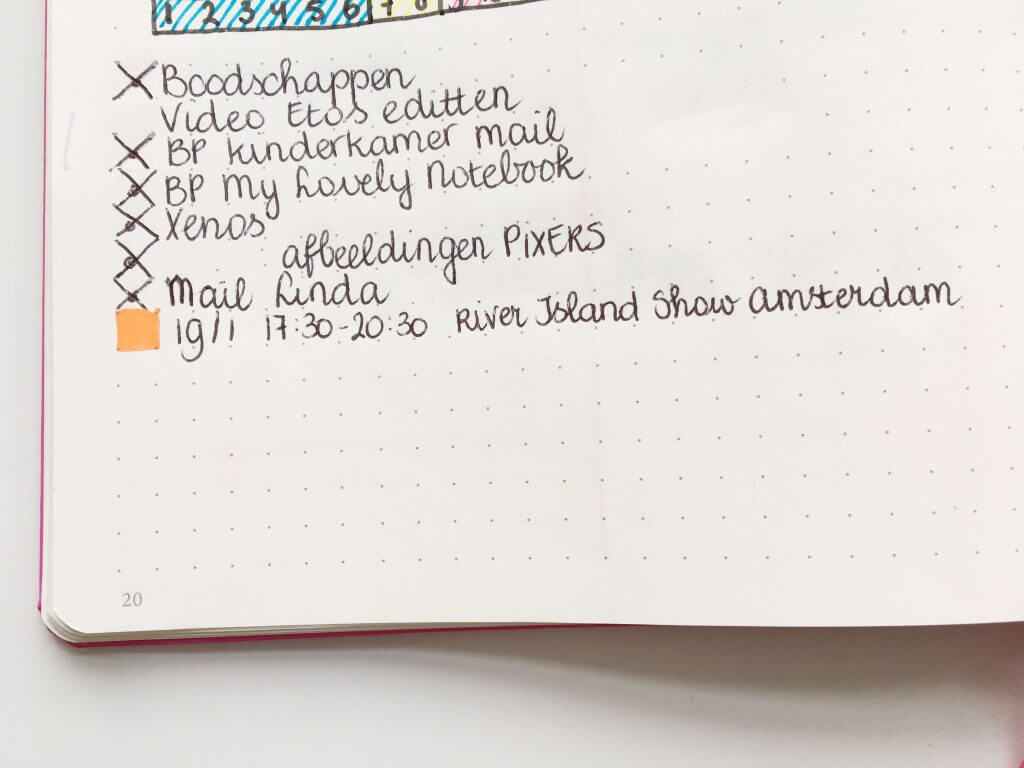 1 2 3 4 5 6 7 8
X Boodschappen
Video Etos editten
X BP kinderkamer mail
X BP My Lovely Notebook
X Xenos
afbeeldingen PIXERS
X Mail Linda
19/1 17:30-20:30 River Island Show Amsterdam
20